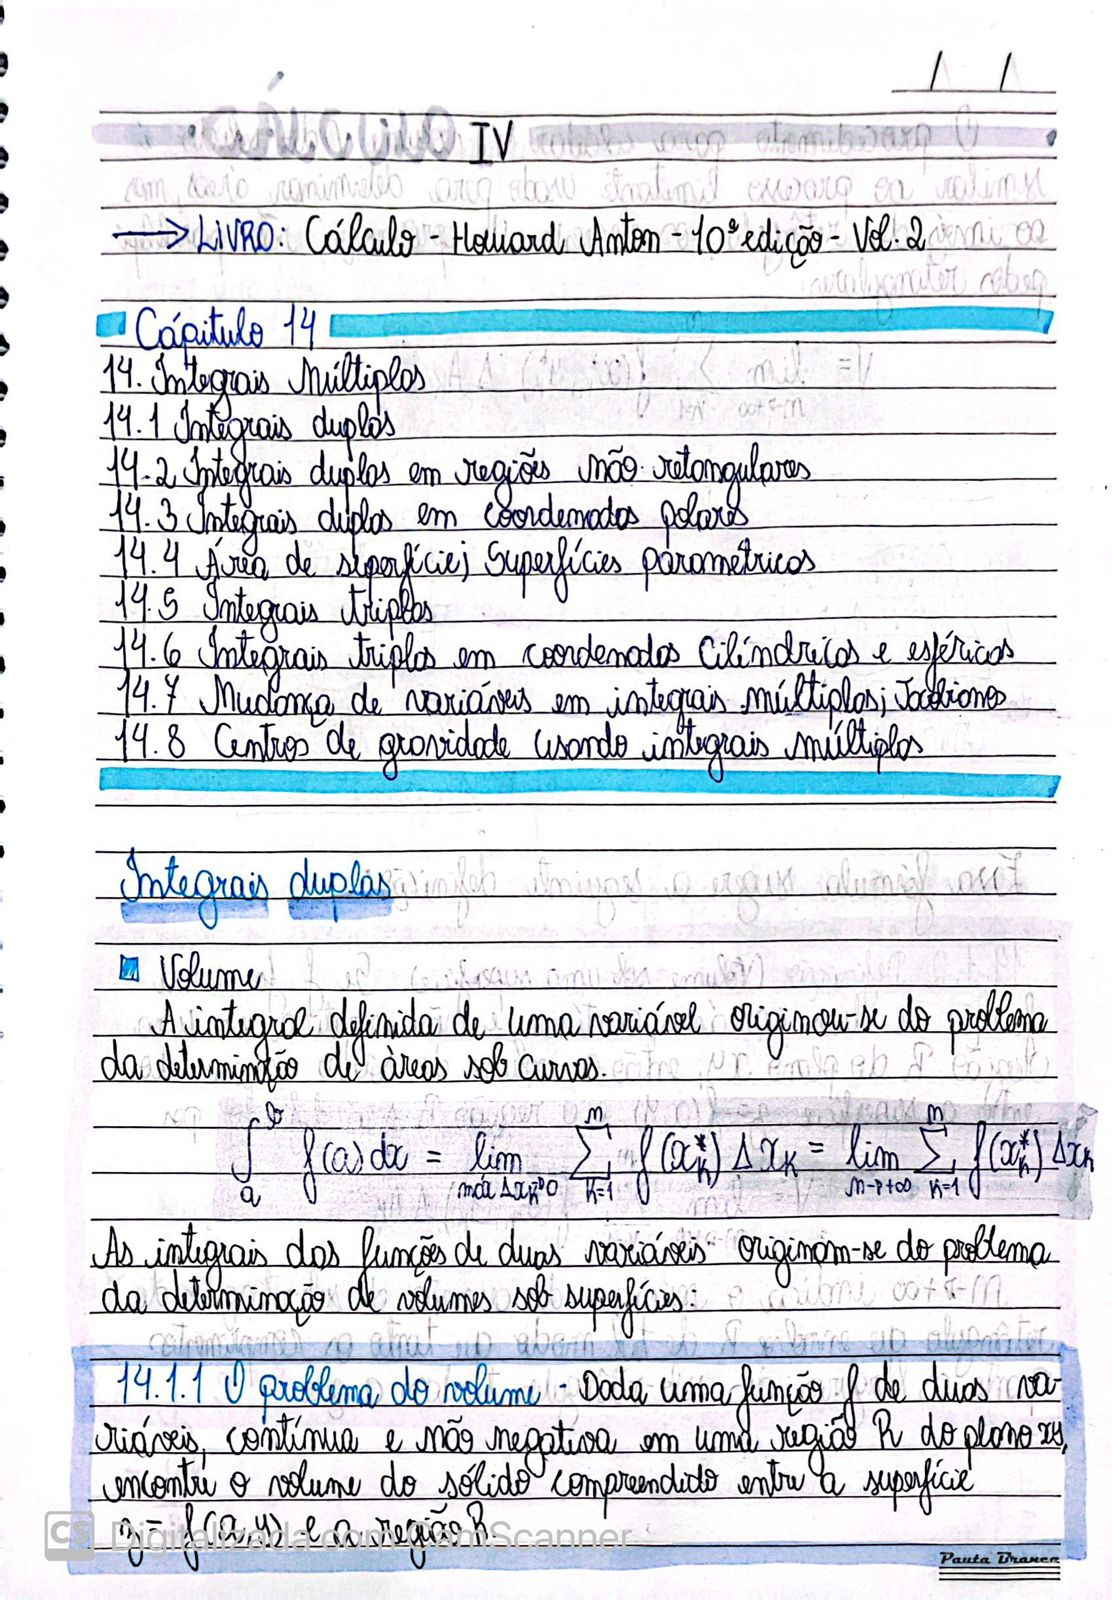 / /
IV
→ LIVRO: Cálculo Howard Anton - 10ª edição - Vol. 2
Cápitulo 14
14. Integrais Múltiplas
14.1 Integrais duplas
14.2 Integrais duplas em regiões não retangulares
14.3 Integrais duplas em coordenadas polares
14.4 Área de superfície; Superfícies paramétricas
14.5 Integrais triplas
14.6 Integrais triplas em coordenadas Cilíndricas e esféricas
14.7 Mudança de variáveis em integrais múltiplas; Jacobianos
14.8 Centros de gravidade usando integrais múltiplas
Integrais duplas
Volume
A integral definida de uma variável originou-se do problema
da determinação de áreas sob curvas.
∫_a^b f(x) dx = lim_{máx Δx_k→0} Σ_{k=1}^n f(x_k^*) Δx_k = lim_{n→+∞} Σ_{k=1}^n f(x_k^*) Δx_k
As integrais das funções de duas variáveis originam-se do problema
da determinação de volumes sob superfícies:
14.1.1 O problema do volume - Dada uma função f de duas va-
riáveis, contínua e não negativa em uma região R do plano xy,
encontre o volume do sólido compreendido entre a superfície
z = f(x,y) e a região R
CS Digitalizada com CamScanner
Pauta Branca